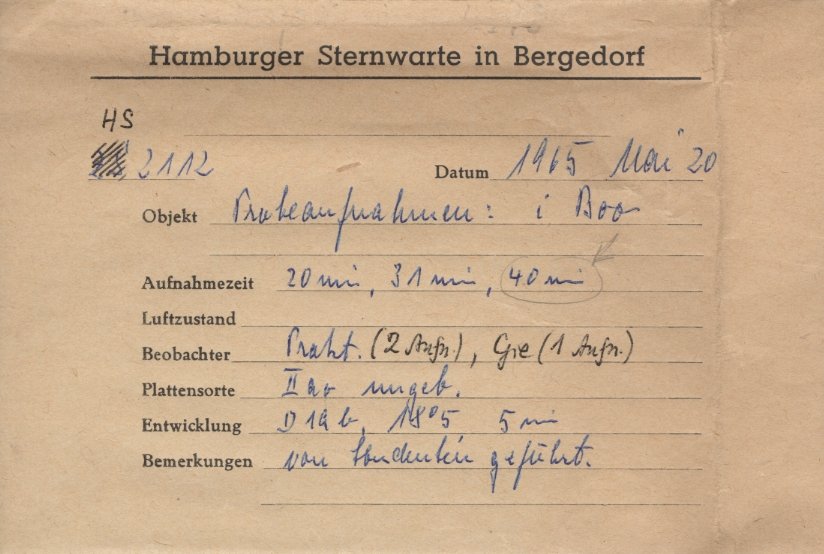 Hamburger Sternwarte in Bergedorf
HS
2112 Datum 1965 Mai 20
Objekt Probeaufnahmen: i Boo
Aufnahmezeit 20 min, 31 min, 40 min
Luftzustand
Beobachter Prakt. (2 Aufn.), Gie (1 Aufn.)
Plattensorte IIao ungeb.
Entwicklung D19b, 18°5 5 min
Bemerkungen von Studentin geführt.